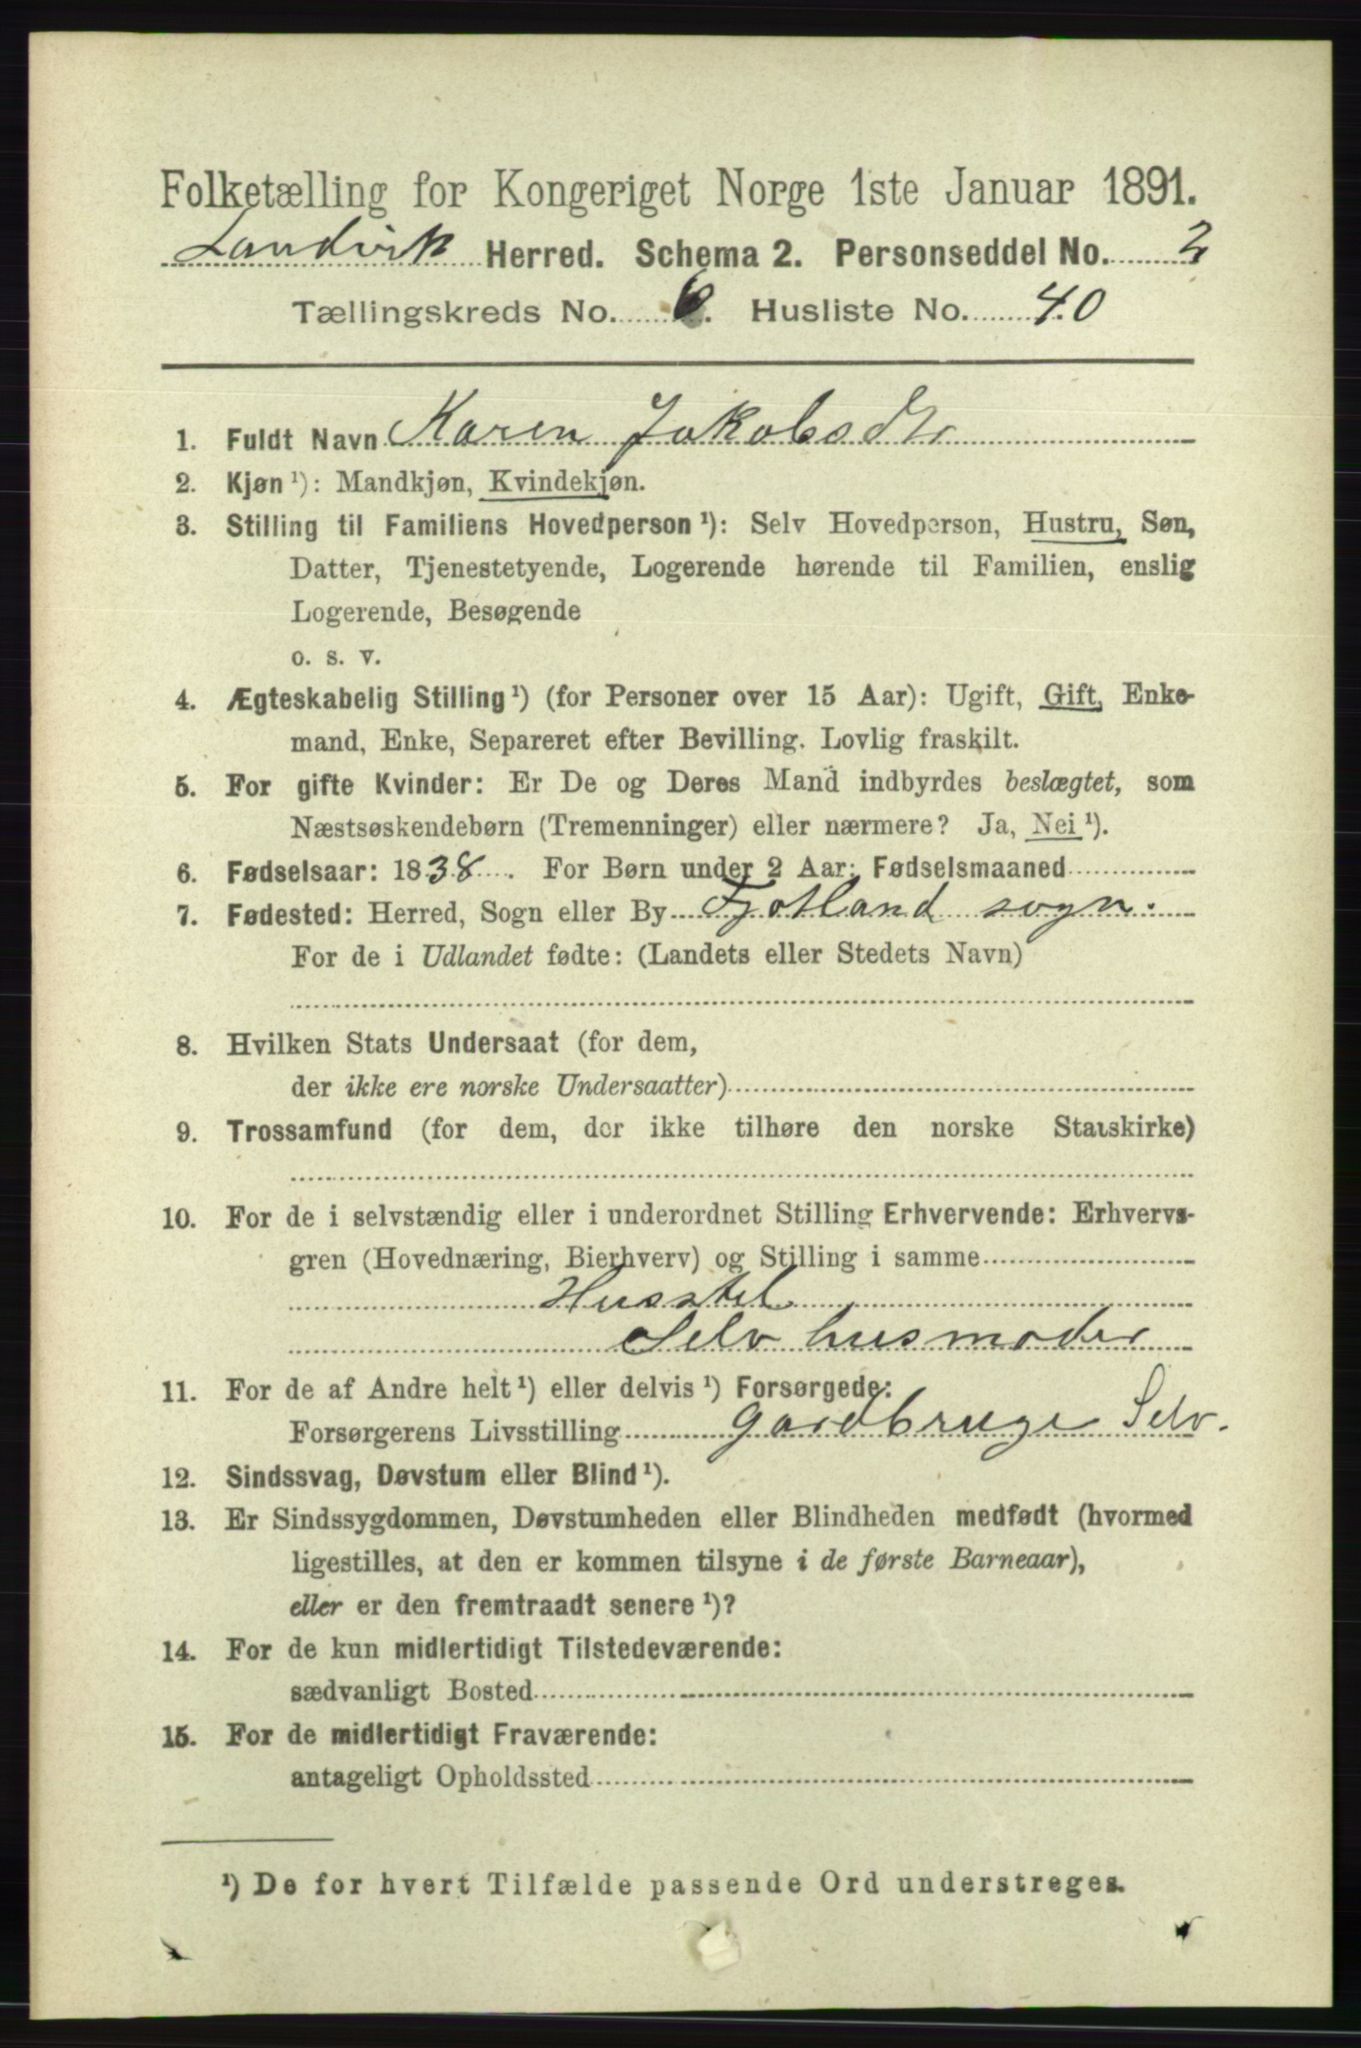 Folketælling for Kongeriget Norge 1ste Januar 1891.
Landvik Herred. Schema 2. Personseddel No. 2
Tællingskreds No. 6. Husliste No. 40
1. Fuldt Navn Karen Jakobsdtr
2. Kjøn ¹): Mandkjøn, Kvindekjøn.
3. Stilling til Familiens Hovedperson ¹): Selv Hovedperson, Hustru, Søn,
Datter, Tjenestetyende, Logerende hørende til Familien, enslig
Logerende, Besøgende
o. s. v.
4. Ægteskabelig Stilling ¹) (for Personer over 15 Aar): Ugift, Gift, Enke-
mand, Enke, Separeret efter Bevilling. Lovlig fraskilt.
5. For gifte Kvinder: Er De og Deres Mand indbyrdes beslægtet, som
Næstsøskendebørn (Tremenninger) eller nærmere? Ja, Nei ¹).
6. Fødselsaar: 1838. For Børn under 2 Aar: Fødselsmaaned
7. Fødested: Herred, Sogn eller By Fjotland sogn.
For de i Udlandet fødte: (Landets eller Stedets Navn)
8. Hvilken Stats Undersaat (for dem,
der ikke ere norske Undersaatter)
9. Trossamfund (for dem, der ikke tilhøre den norske Statskirke)
10. For de i selvstændig eller i underordnet Stilling Erhvervende: Erhvervs-
gren (Hovednæring, Bierhverv) og Stilling i samme
Husstel
Selv husmoder
11. For de af Andre helt ¹) eller delvis ¹) Forsørgede:
Forsørgerens Livsstilling Gardbruge Selv.
12. Sindssvag, Døvstum eller Blind ¹).
13. Er Sindssygdommen, Døvstumheden eller Blindheden medfødt (hvormed
ligestilles, at den er kommen tilsyne i de første Barneaar),
eller er den fremtraadt senere ¹)?
14. For de kun midlertidigt Tilstedeværende:
sædvanligt Bosted
15. For de midlertidigt Fraværende:
antageligt Opholdssted
¹) De for hvert Tilfælde passende Ord understreges.